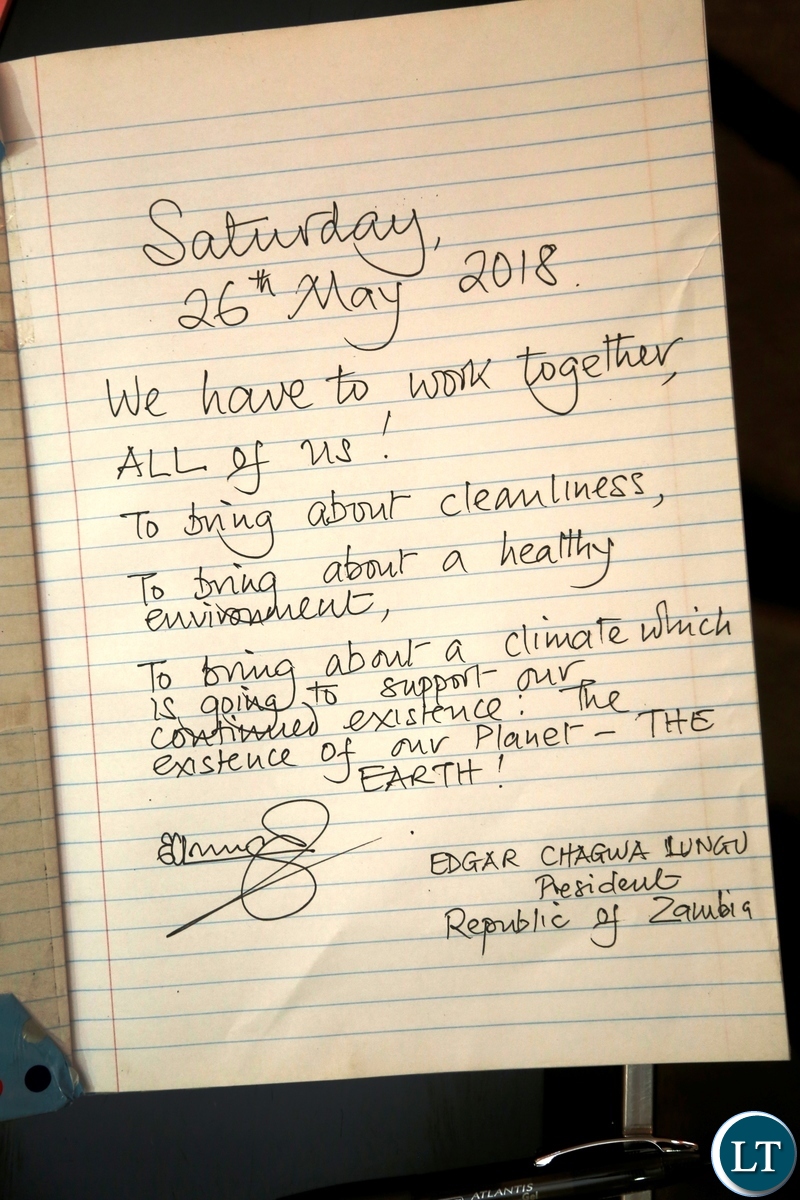 Saturday,
26th May 2018.
We have to work together,
ALL of us!
To bring about cleanliness,
To bring about a healthy
environment,
To bring about a climate which
is going to support our
continued existence: The
existence of our Planet - THE
EARTH!
EDGAR CHAGWA LUNGU
President
Republic of Zambia
ATLANTIS
LT